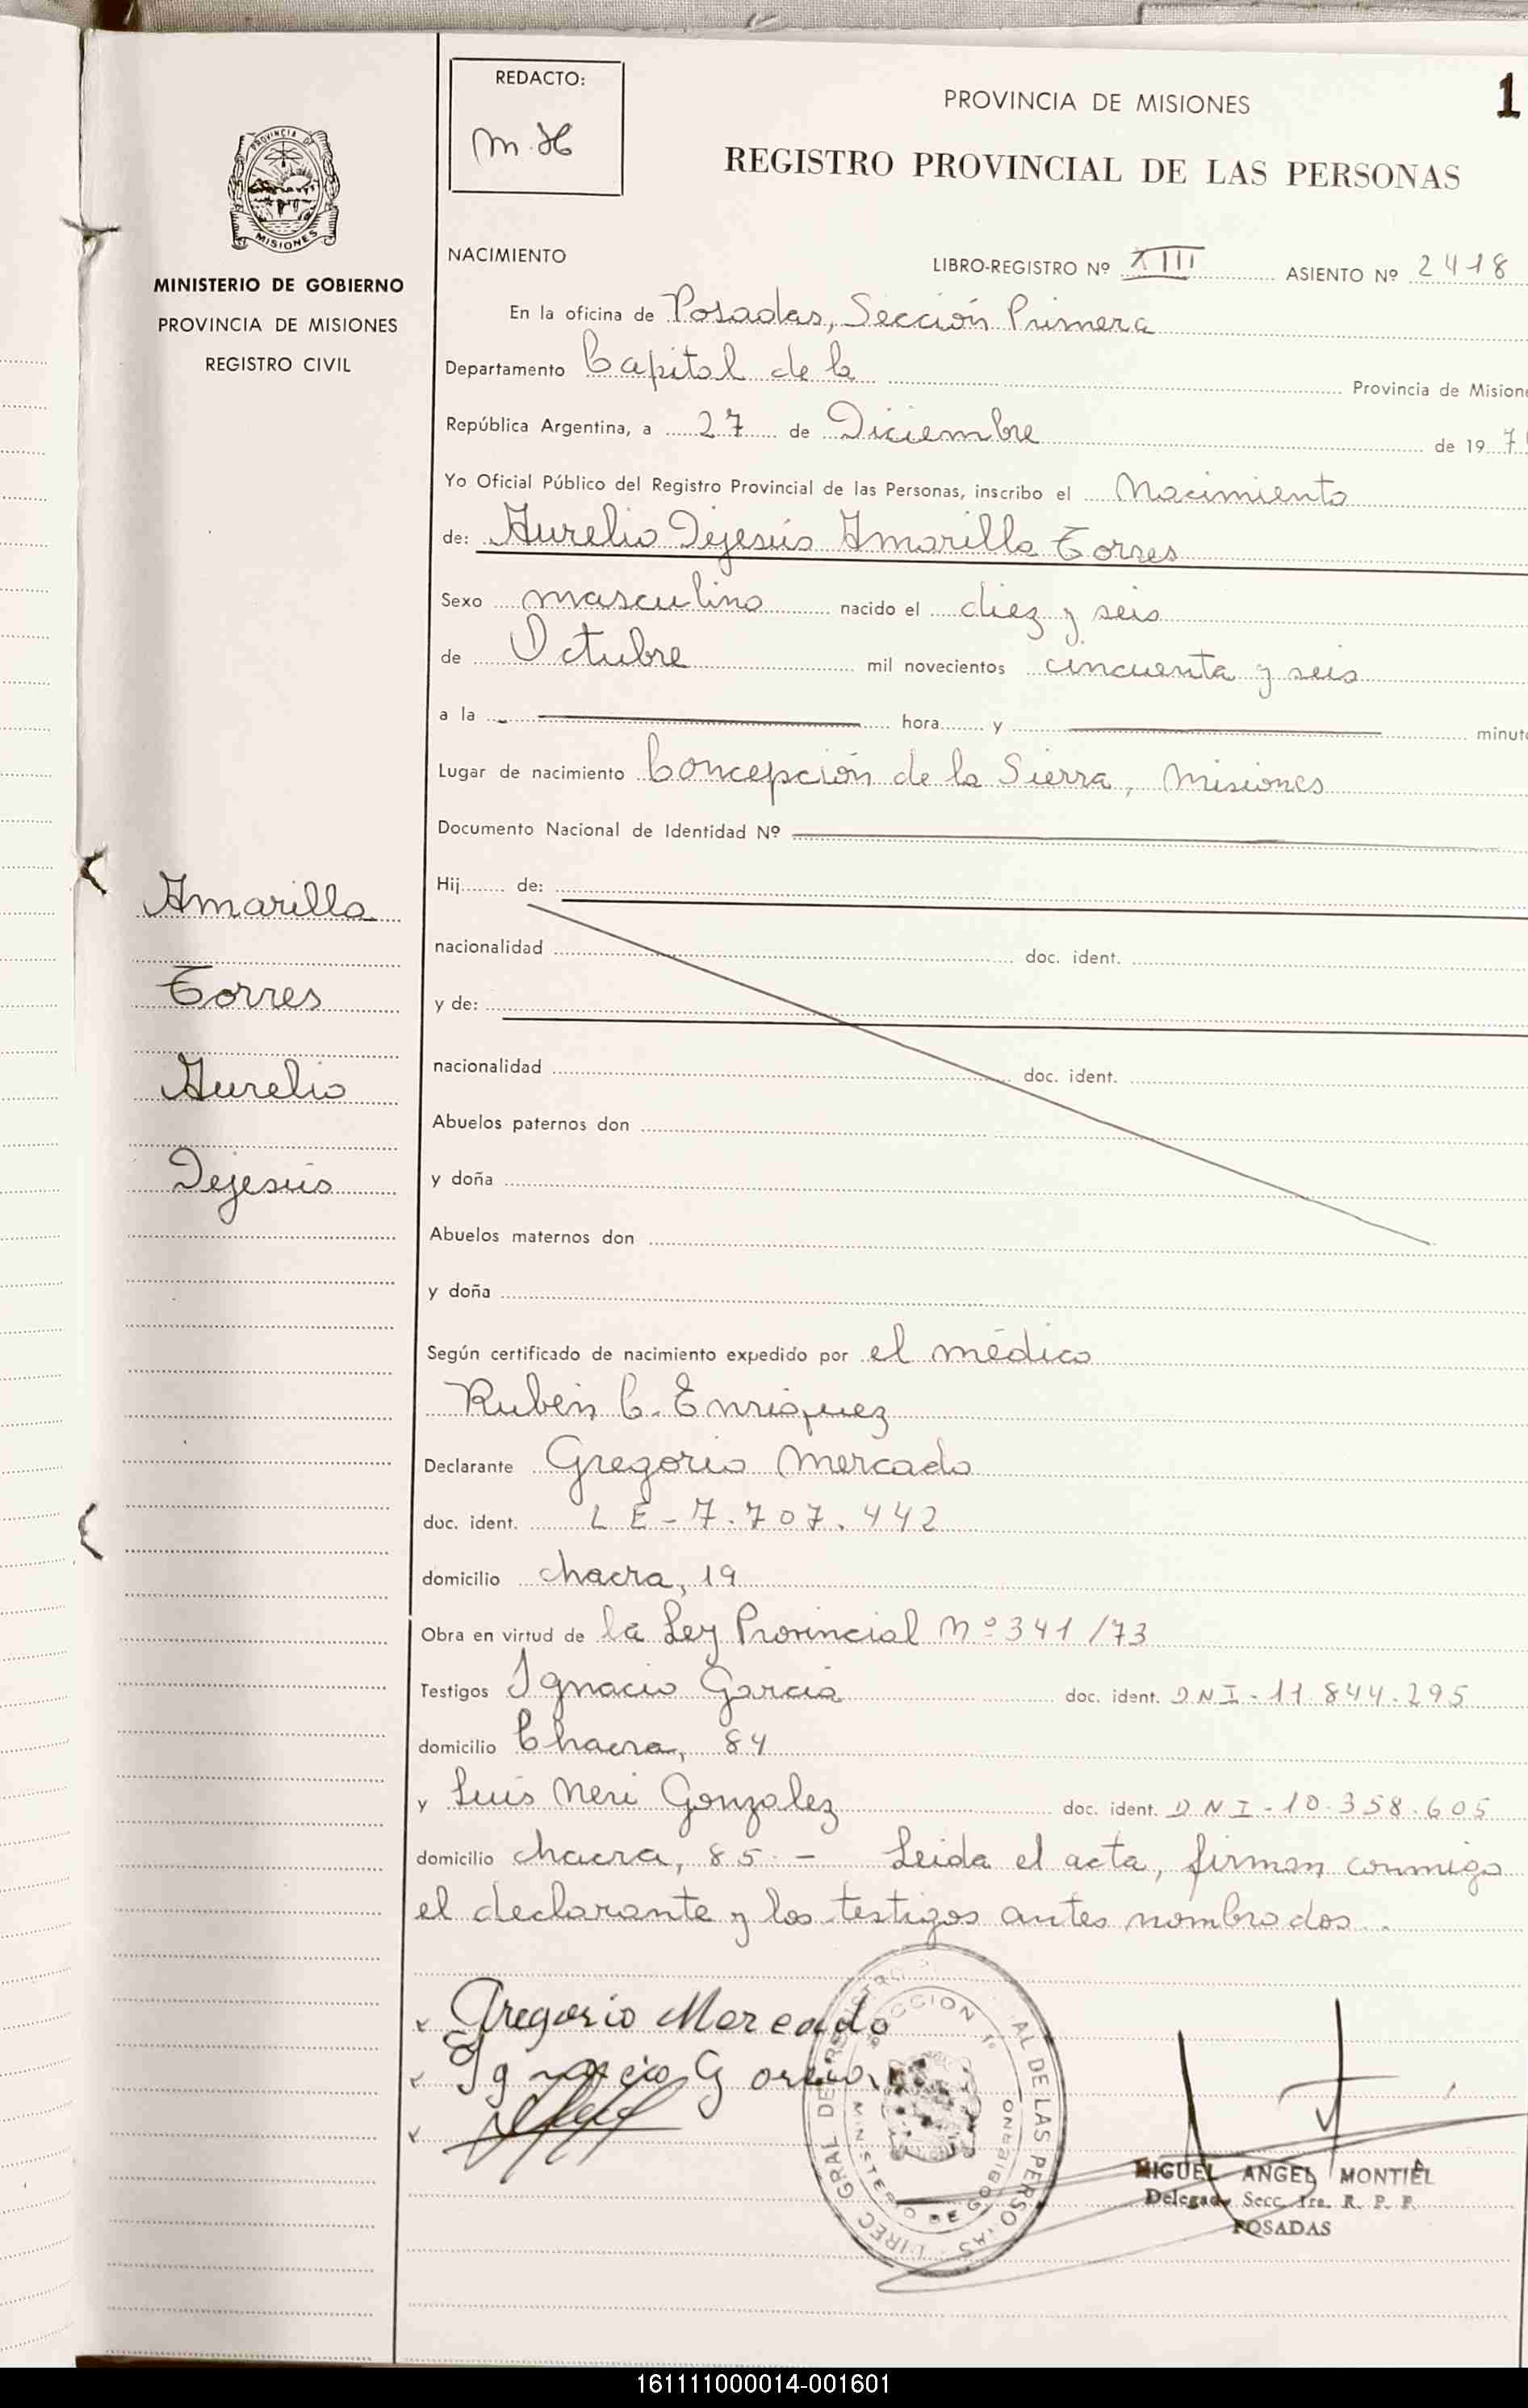 REDACTO:
M.H
PROVINCIA DE MISIONES
1
REGISTRO PROVINCIAL DE LAS PERSONAS
PROVINCIA DE
MISIONES
MINISTERIO DE GOBIERNO
PROVINCIA DE MISIONES
REGISTRO CIVIL
NACIMIENTO
LIBRO-REGISTRO Nº XIII ASIENTO Nº 2418
En la oficina de Posadas, Sección Primera
Departamento Capital de la Provincia de Misione
República Argentina, a 27 de Diciembre de 19 7
Yo Oficial Público del Registro Provincial de las Personas, inscribo el Nacimiento
de: Aurelio Dejesús Amarilla Torres
Sexo masculino nacido el diez y seis
de Octubre mil novecientos cincuenta y seis
a la hora y minut
Lugar de nacimiento Concepción de la Sierra, Misiones
Documento Nacional de Identidad Nº
Hij de:
nacionalidad doc. ident.
y de:
nacionalidad doc. ident.
Abuelos paternos don
y doña
Abuelos maternos don
y doña
Amarilla
Torres
Aurelio
Dejesús
Según certificado de nacimiento expedido por el médico
Rubén C. Enriquez
Declarante Gregorio Mercado
doc. ident. L E - 7.707.442
domicilio chacra, 19
Obra en virtud de la Ley Provincial Nº 341/73
Testigos Ignacio Garcia doc. ident. DNI-11.844.295
domicilio Chacra, 84
y Luis Neri Gonzalez doc. ident. DNI-10.358.605
domicilio chacra, 85.- Leida el acta, firman conmigo
el declarante y los testigos antes nombrados.
Gregorio Mercado
Ignacio Garcia
MIGUEL ANGEL MONTIEL
Delegado Secc. 1ra. R. P. P.
POSADAS
SECCION 1ª
MINISTERIO DE GOBIERNO
161111000014-001601